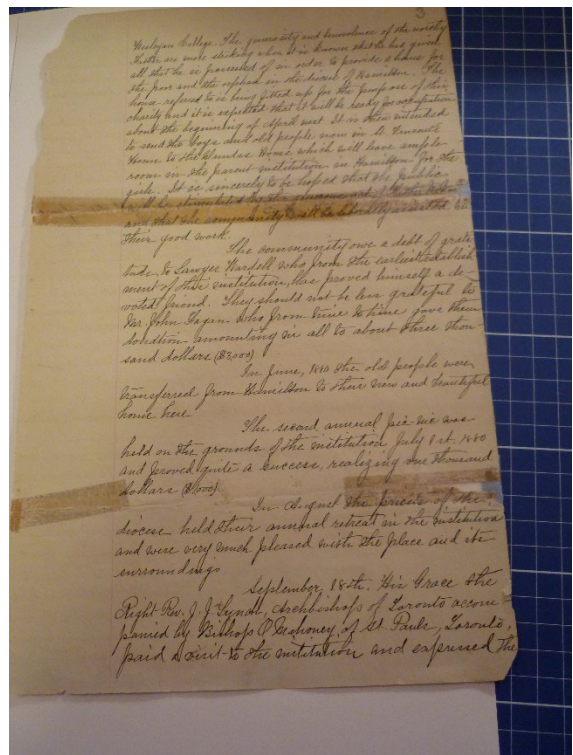 3
Wesleyan College. The generosity and benevolence of the worthy
Father are more striking when it is known that he has given
all that he is possessed of in order to provide a home for
the poor and the orphan in the diocese of Hamilton. The
house referred to is being fitted up for the purpose of this
charity and it is expected that it will be ready for occupation
about the beginning of April next. It is then intended
to send the boys and old people now in St. Vincent's
Home to the Dundas Home which will leave ample
room in the parent institution in Hamilton for the
girls. It is sincerely to be hoped that the public
will be stimulated by the generous act of the
and that the community will be liberally assisted in
their good work.
The community owe a debt of grati
tude to Lawyer Wardell who from the earliest establish
ment of this institution, has proved himself a de-
voted friend. They should not be less grateful to
Mr. John Fagan who from time to time gave them
donation amounting in all to about three thou-
sand dollars ($3,000)
In June, 1880 the old people were
transferred from Hamilton to their new and beautiful
home here.
The second annual pic-nic was
held on the grounds of the institution July 1st. 1880
and proved quite a success, realizing one thousand
dollars ($1,000)
In August the priests of the
diocese held their annual retreat in the institution
and were very much pleased with the place and its
surroundings
September, 18th. His Grace the
Right Rev. J. J. Lynch, Archbishop of Toronto accom
panied by Bishop O'Mahoney, of St. Pauls, Toronto,
paid a visit to the institution and expressed the